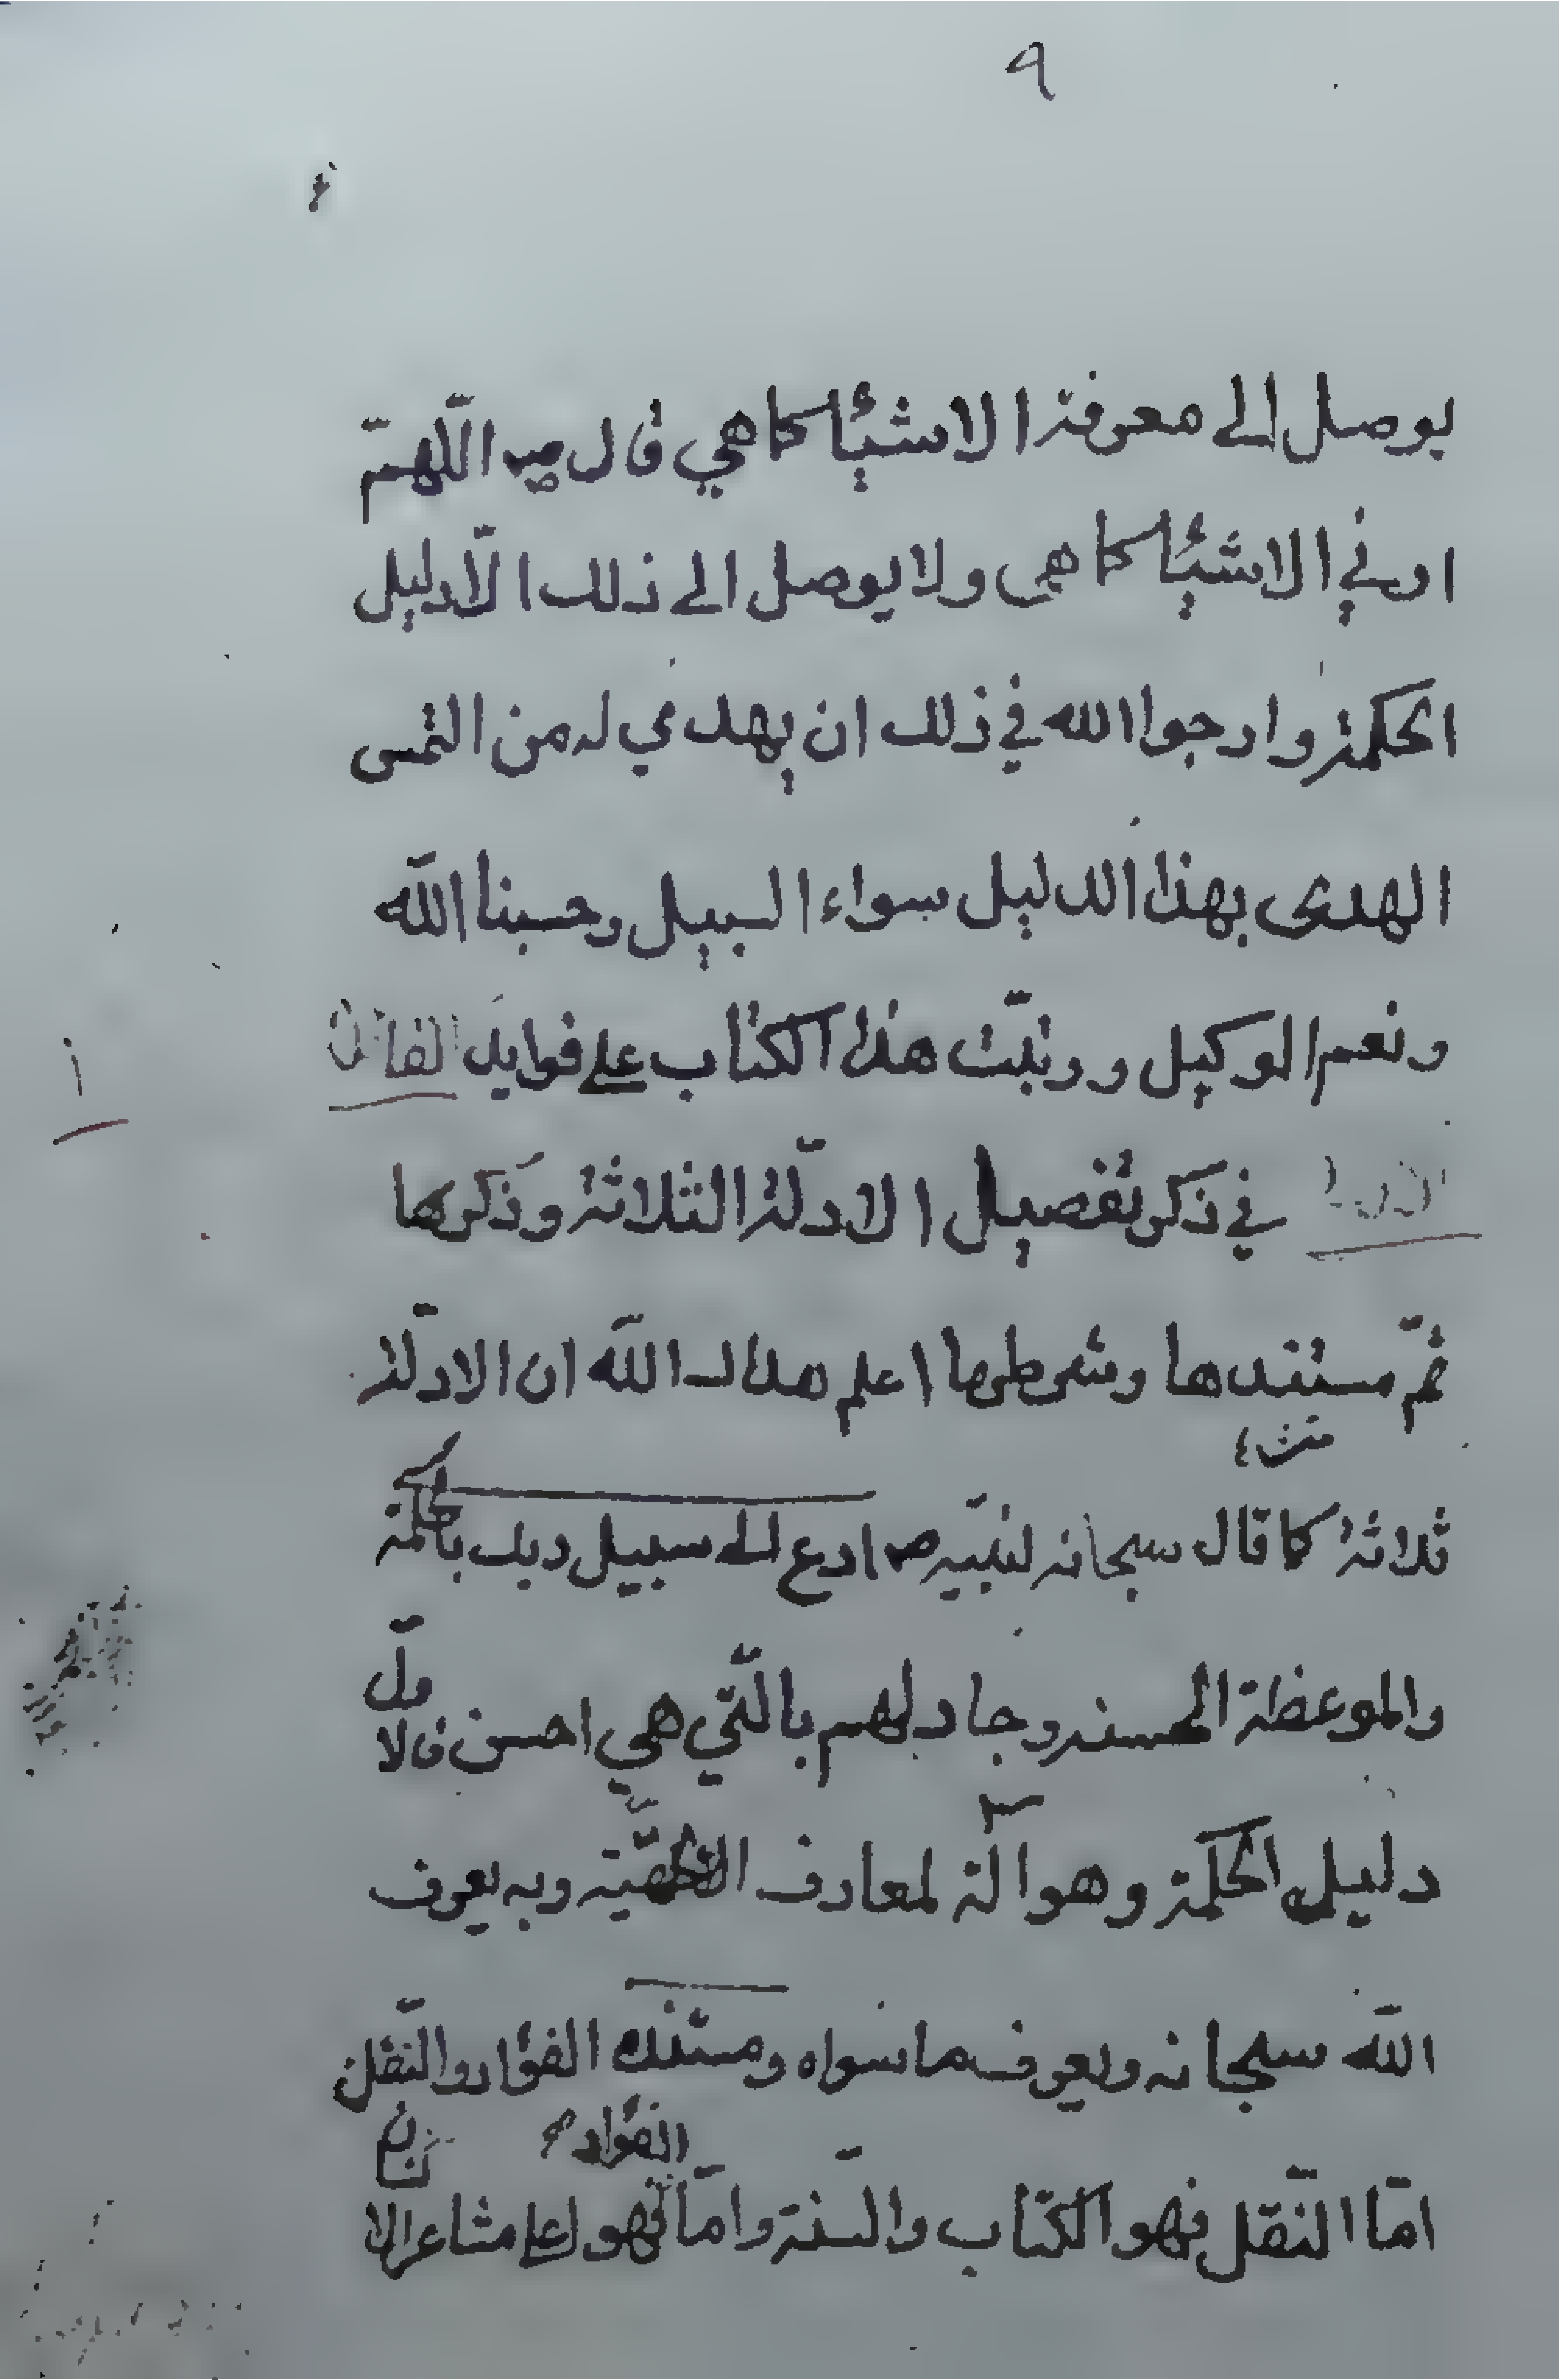 ٩
يوصل الى معرفة الاشيٰٓاء كما هي قال ص اللّهمّ
ارني الاشيٰٓاء كما هي ولا يوصل الى ذلك الّا دليل
الحكمة وارجوا الله في ذلك ان يهدي له من التمس
الهدى بهذا الدليل سواء السبيل وحسبنا اللّه
ونعم الوكيل ورتّبت هذا الكتاب على فوايد الفائدة
الاولى في ذكر تفصيل الادلّة الثلاثة وذكرها
ثمّ مستندها وشرطها اعلم هداك اللّه ان الادلّة
ثلاثة كما قال سبحانه لنبيّه ص ادع الى سبيل ربك بالحكمة
والموعظة الحسنه وجادلهم بالّتي هي احسن فالاوّل
دليل الحكمة وهو آلة لمعارف الحقيّة وبه يعرف
اللّه سبحانه ويعرف ما سواه ومستنده الفؤاد والنّقل
الفؤاد ص
امّا النّقل فهو الكتاب والسنة وامّا فهو اعلى مشاعر الا